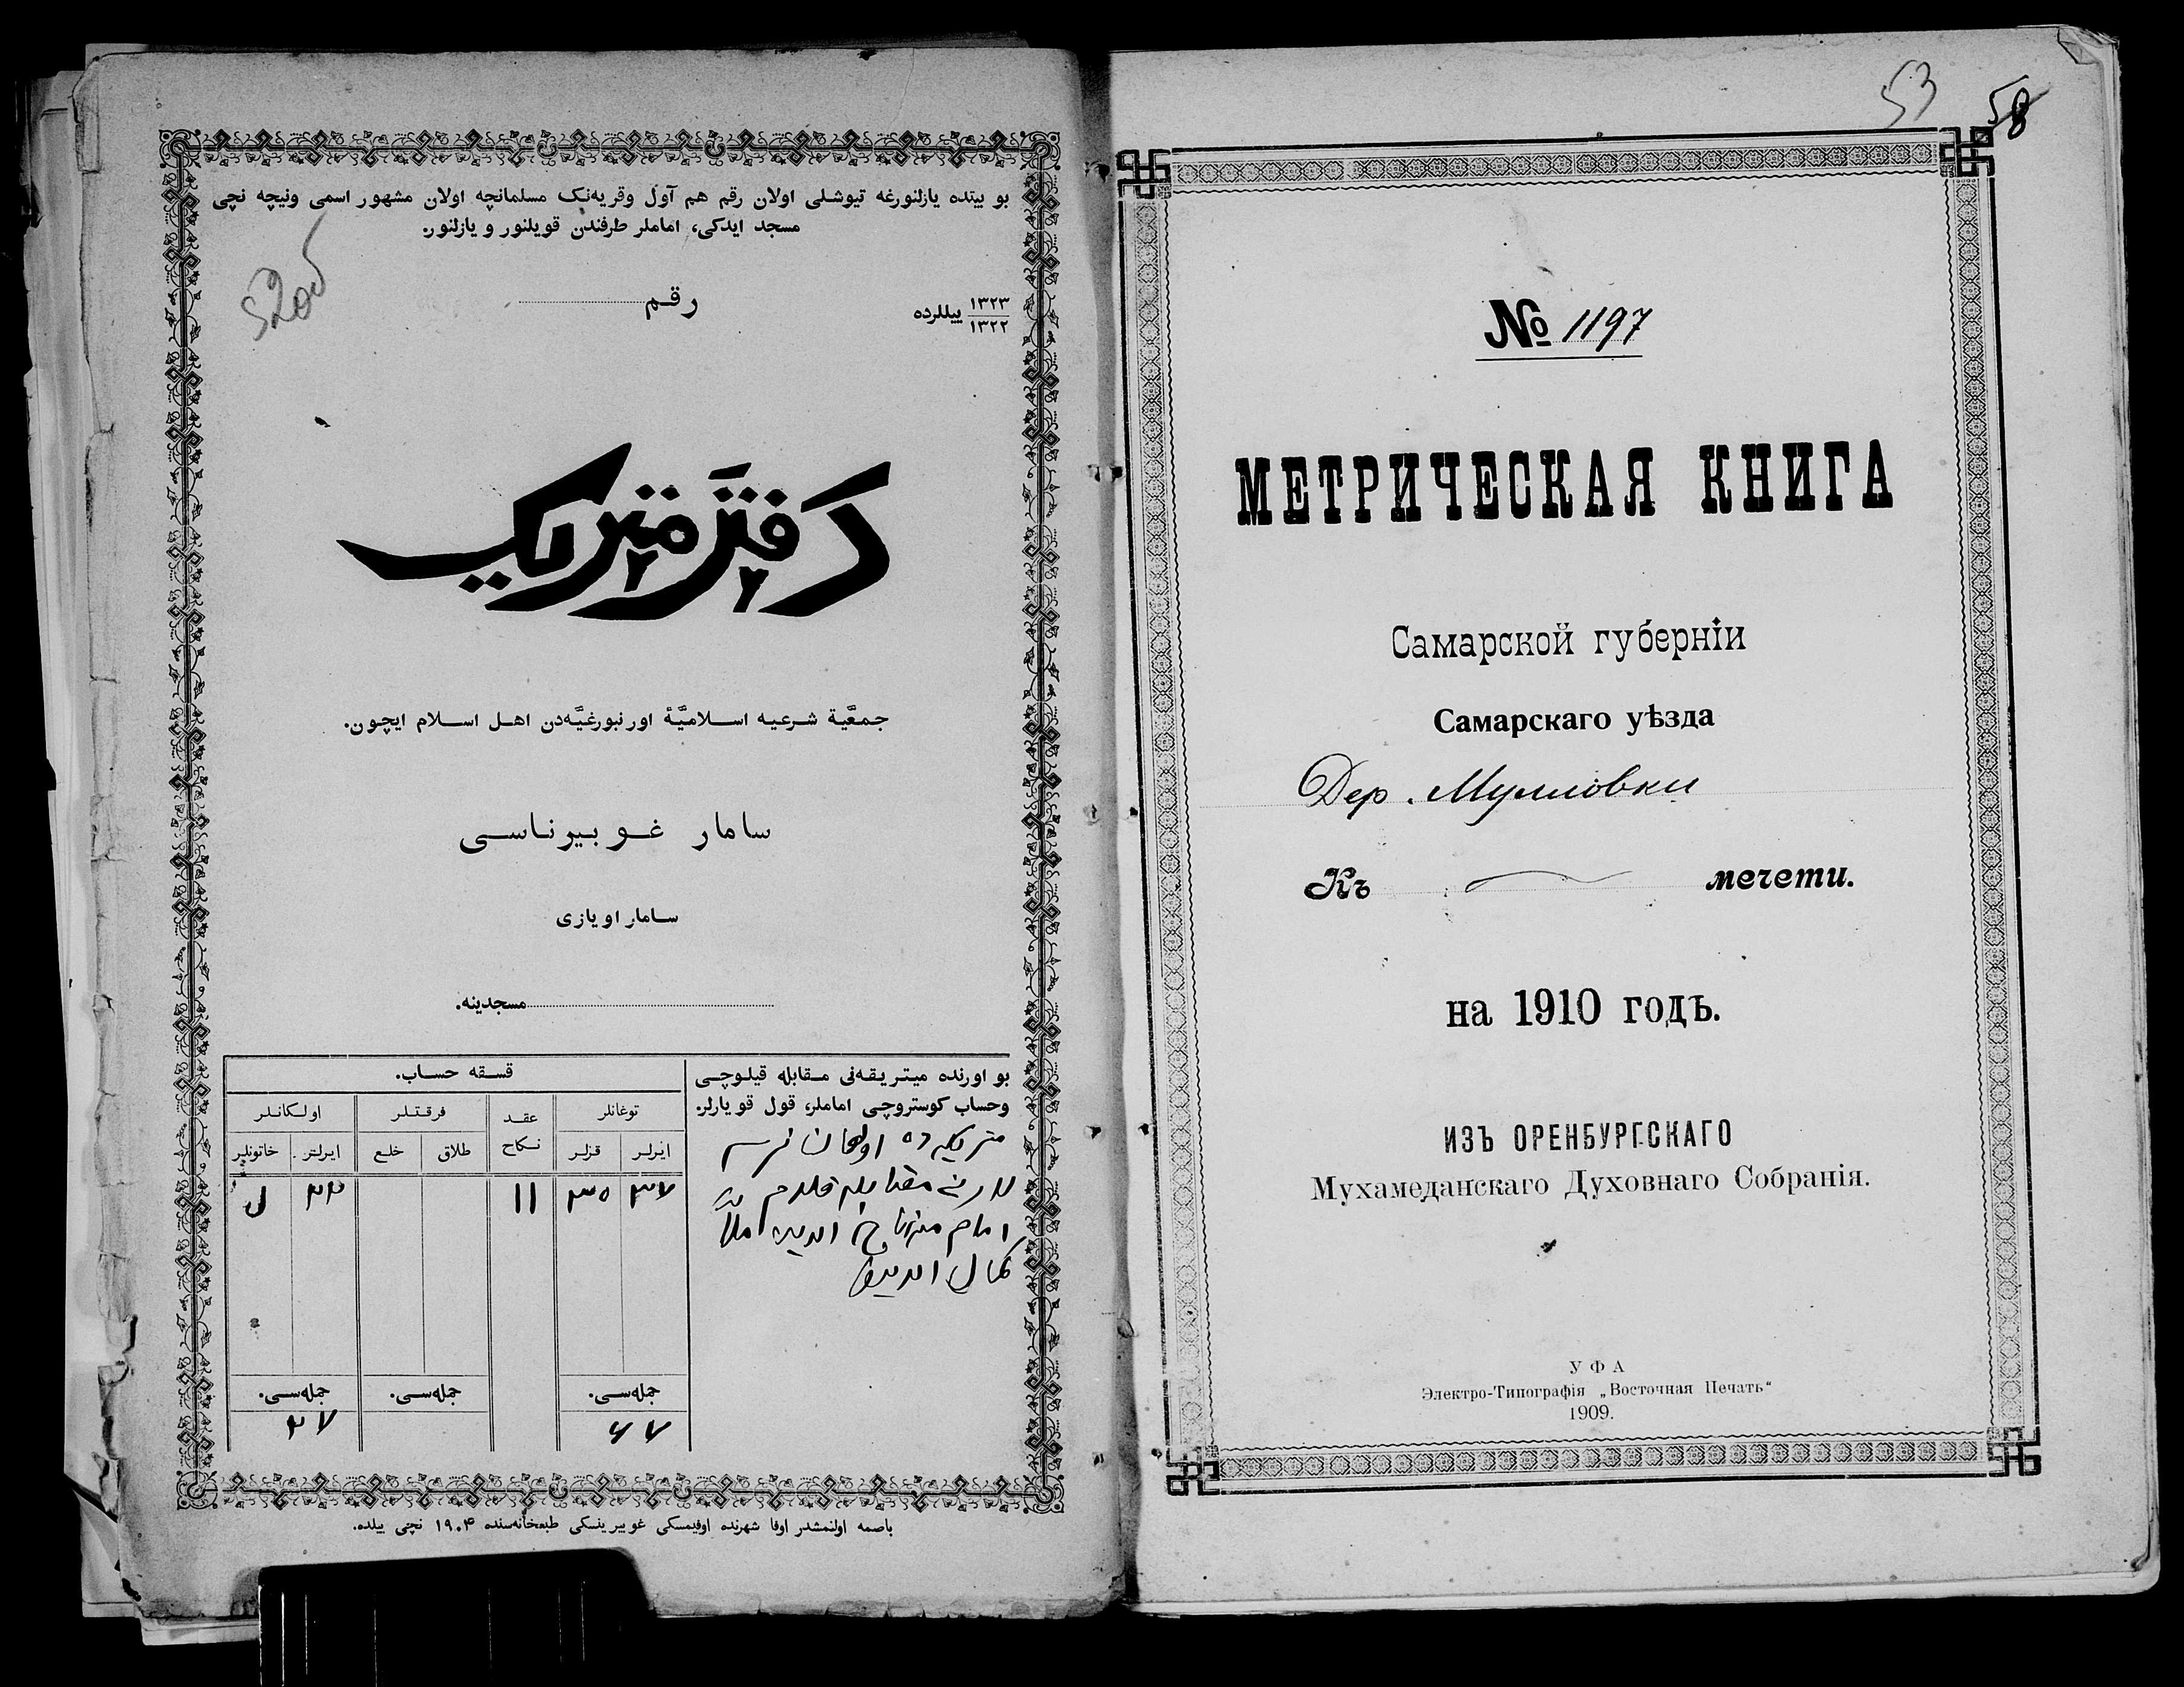 بو بيتده يازلنورغه تيوشلى اولان رقم هم آول وقريه‌نك مسلمانچه اولان مشهور اسمى ونيچه نچى
مسجد ايدكى، اماملر طرفندن قويلنور و يازلنور.
۱۳۲۳
۱۳۲۲
ييللرده
رقم
دفتر متريك
جمعيّة شرعيه اسلاميّۀ اورنبورغيّه‌دن اهل اسلام ايچون.
سامار غوبيرناسى
سامار اويازى
مسجدينه.
بو اورنده ميتريقه‌نى مقابله قيلوچى
وحساب كوستروچى اماملر، قول قويارلر.
قسقه حساب.
توغانلر
عقد نكاح
فرقتلر
اولكانلر
ايرلر
قزلر
طلاق
خلع
ايرلر
خاتونلر
۳۷
۳۰
۱۱
جمله‌سى.
جمله‌سى.
جمله‌سى.
۶۷
۲۷
باصمه اولنمشدر اوفا شهرنده اوفيمسكى غوبيرينسكى طبعخانه‌سنده ۱۹۰۴ نچى ييلده.
53 58
№ 1197
МЕТРИЧЕСКАЯ КНИГА
Самарской губерніи
Самарскаго уѣзда
Дер. Мулловки
Къ мечети.
на 1910 годъ.
ИЗЪ ОРЕНБУРГСКАГО
Мухамеданскаго Духовнаго Собранія.
УФА
Электро-Типографія „Восточная Печать“
1909.